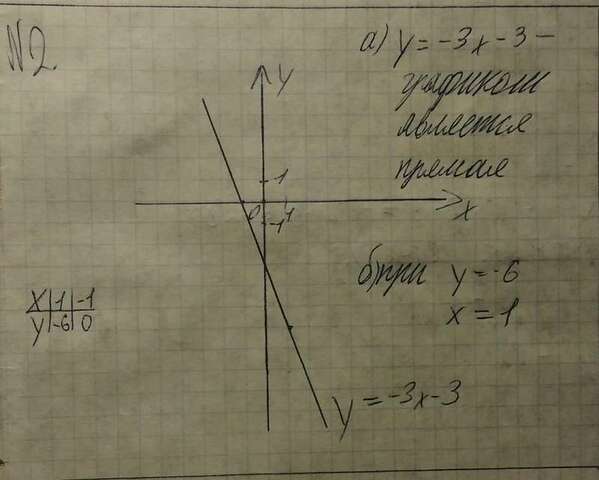 N2.
а) y = -3x - 3 -
графиком
является
прямая
y
1
0
1
-1
x
б) при y = -6
x = 1
x | 1 | -1
y | -6 | 0
y = -3x-3